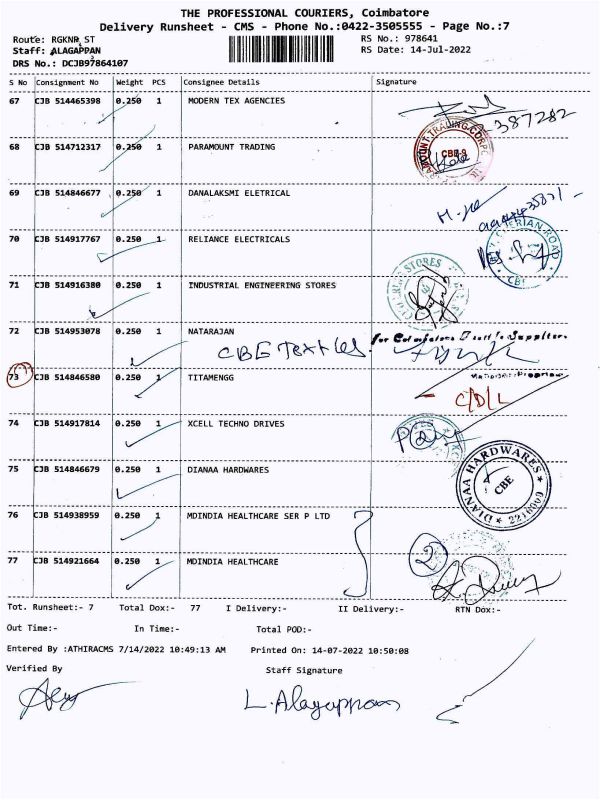 THE PROFESSIONAL COURIERS, Coimbatore
Delivery Runsheet - CMS - Phone No.:0422-3505555 - Page No.:7
Route: RGKNR ST RS No.: 978641
Staff: ALAGAPPAN RS Date: 14-Jul-2022
DRS No.: DCJB97864107
S No Consignment No Weight PCS Consignee Details Signature
67 CJB 514465398 0.250 1 MODERN TEX AGENCIES
387282
68 CJB 514712317 0.250 1 PARAMOUNT TRADING
69 CJB 514846677 0.250 1 DANALAKSMI ELETRICAL
70 CJB 514917767 0.250 1 RELIANCE ELECTRICALS
71 CJB 514916380 0.250 1 INDUSTRIAL ENGINEERING STORES
STORES
72 CJB 514953078 0.250 1 NATARAJAN
CBE Textiles
73 CJB 514846580 0.250 1 TITAMENGG
C/D/L
74 CJB 514917814 0.250 1 XCELL TECHNO DRIVES
75 CJB 514846679 0.250 1 DIANAA HARDWARES
DIANAA HARDWARES
CBE
76 CJB 514938959 0.250 1 MDINDIA HEALTHCARE SER P LTD
77 CJB 514921664 0.250 1 MDINDIA HEALTHCARE
2
Tot. Runsheet:- 7 Total Dox:- 77 I Delivery:- II Delivery:- RTN Dox:-
Out Time:- In Time:- Total POD:-
Entered By :ATHIRACMS 7/14/2022 10:49:13 AM Printed On: 14-07-2022 10:50:08
Verified By Staff Signature
L. Alagappan